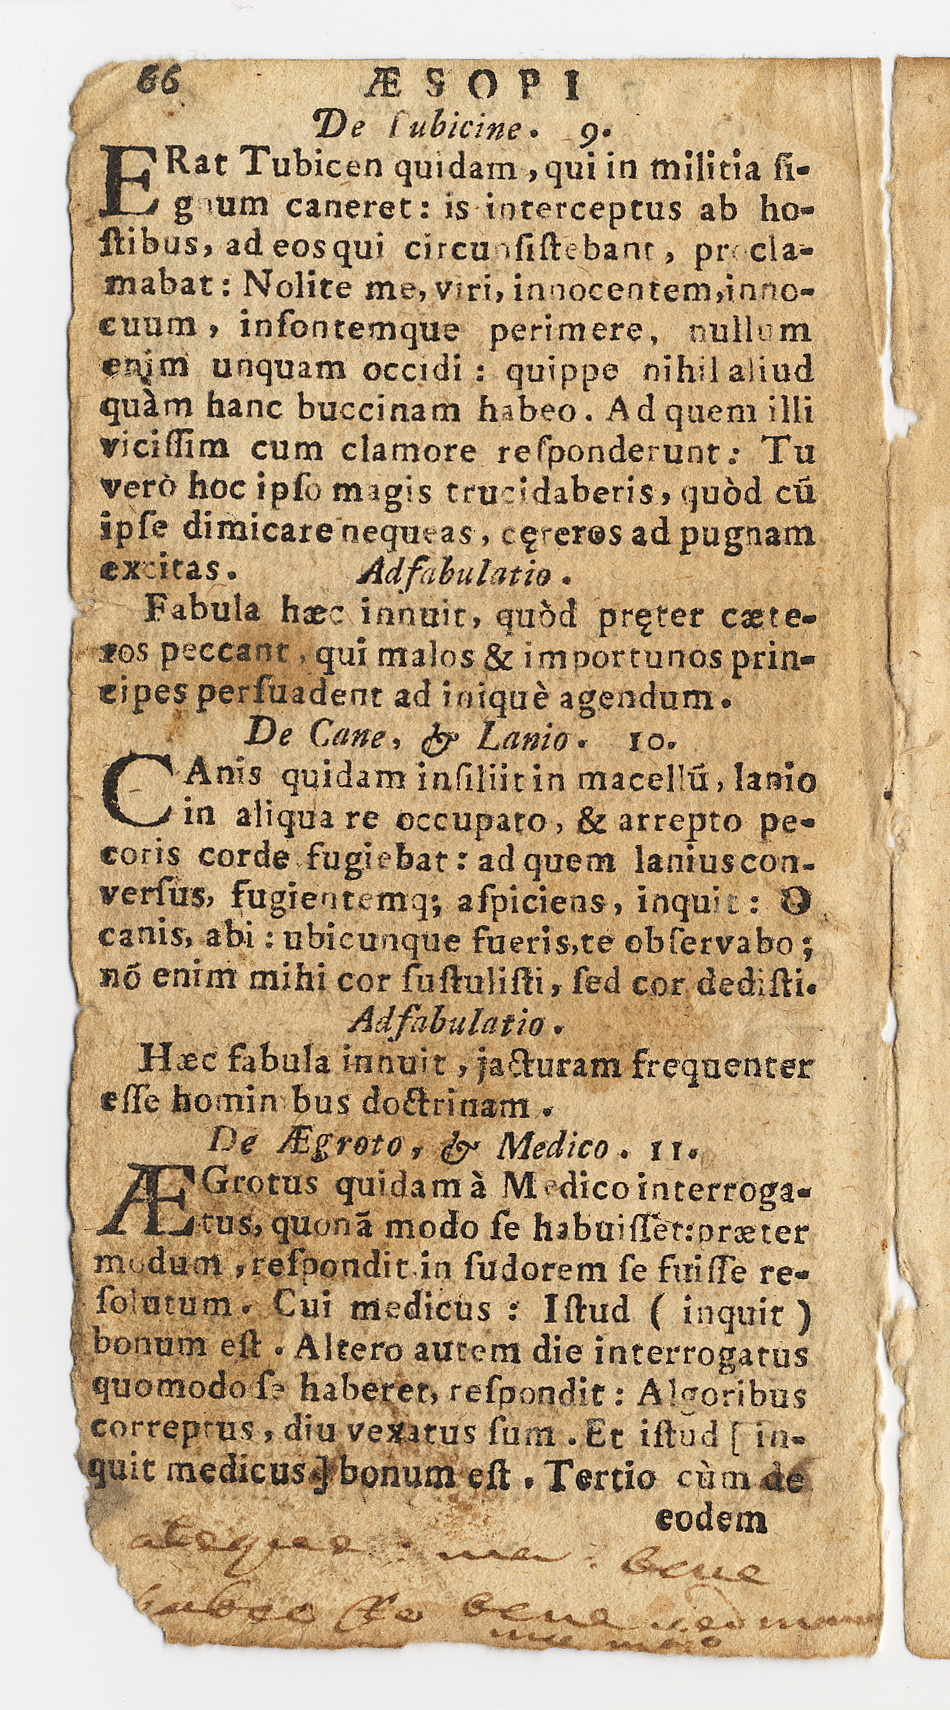 66 ÆSOPI
De Tubicine. 9.
ERat Tubicen quidam, qui in militia ſi-
gnum caneret: is interceptus ab ho-
ſtibus, ad eos qui circunſiſtebant, procla-
mabat: Nolite me, viri, innocentem, inno-
cuum, inſontemque perimere, nullum
enim unquam occidi: quippe nihil aliud
quàm hanc buccinam habeo. Ad quem illi
viciſſim cum clamore reſponderunt: Tu
verò hoc ipſo magis trucidaberis, quòd cũ
ipſe dimicare nequeas, cęteros ad pugnam
excitas. Adfabulatio.
Fabula hæc innuit, quòd pręter cæte-
ros peccant, qui malos & importunos prin-
cipes perſuadent ad iniquè agendum.
De Cane, & Lanio. 10.
CAnis quidam inſiliit in macellũ, lanio
in aliqua re occupato, & arrepto pe-
coris corde fugiebat: ad quem lanius con-
verſus, fugientemq; aſpiciens, inquit: O
canis, abi: ubicunque fueris, te obſervabo;
nõ enim mihi cor ſuſtuliſti, ſed cor dediſti.
Adfabulatio.
Hæc fabula innuit, jacturam frequenter
eſſe hominibus doctrinam.
De Ægroto, & Medico. 11.
ÆGrotus quidam à Medico interroga-
tus, quonã modo ſe habuiſſet: præter
modum, reſpondit in ſudorem ſe fuiſſe re-
ſolutum. Cui medicus: Iſtud ( inquit )
bonum eſt. Altero autem die interrogatus
quomodo ſe haberet, reſpondit: Algoribus
correptus, diu vexatus ſum. Et iſtud [ in-
quit medicus ] bonum eſt. Tertio cùm de
eodem
bene
bene